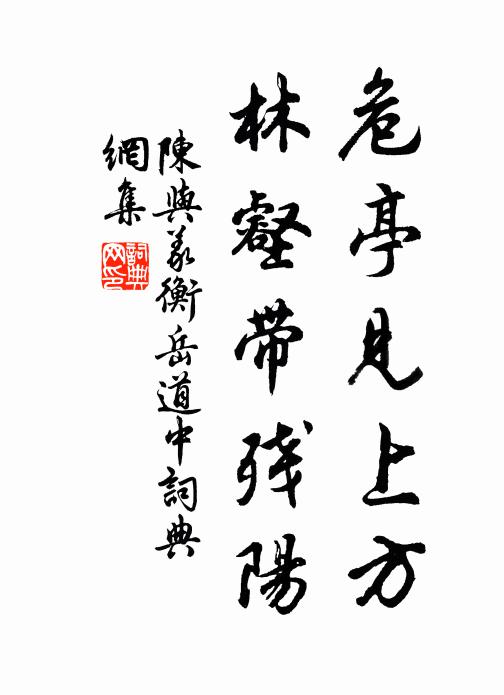 危亭見上方
林壑帶残陽
陳與義衡岳道中詞典
網集
詞典
网印